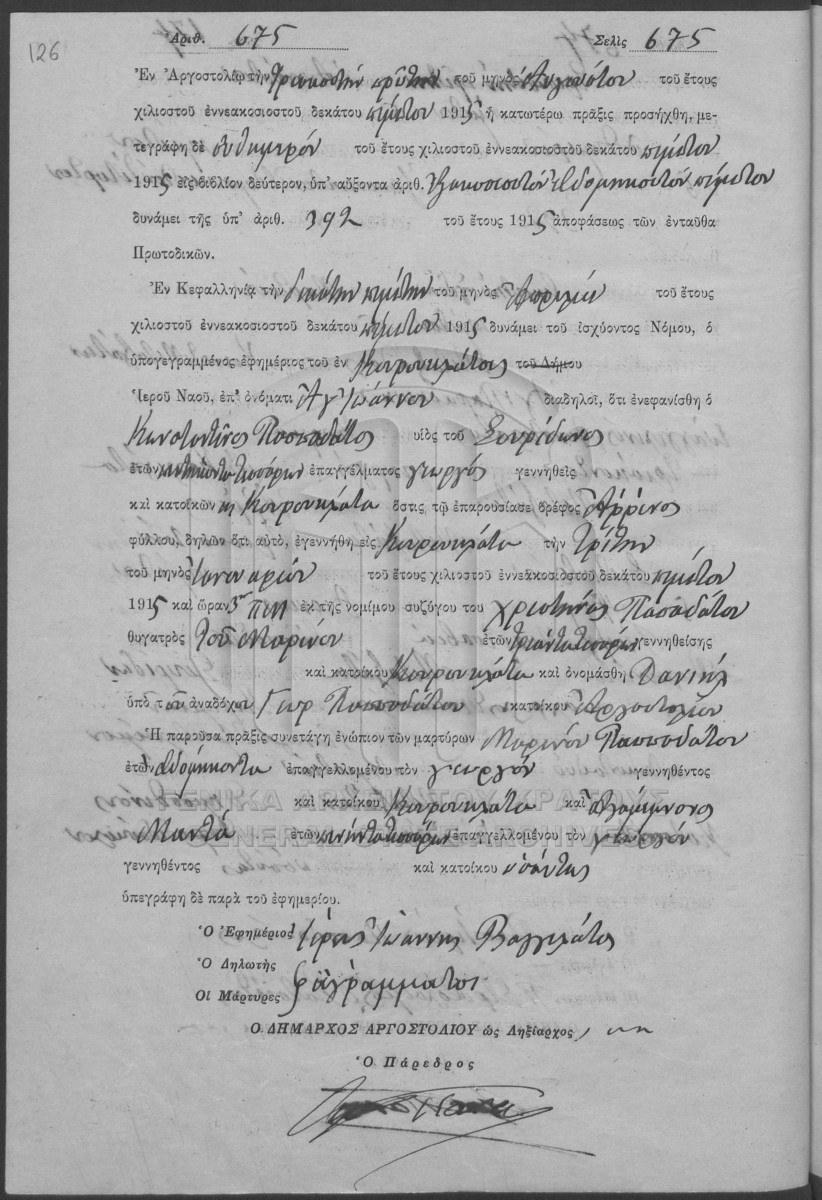 126
Ἀριθ. 675 Σελὶς 675
Ἐν Ἀργοστολίῳ τὴν τριακοστὴν πρώτην τοῦ μηνὸς Αὐγούστου τοῦ ἔτους
χιλιοστοῦ ἐννεακοσιοστοῦ δεκάτου πέμπτου 1915 ἡ κατωτέρω πρᾶξις προσήχθη, με-
τεγράφη δὲ αὐθημερόν τοῦ ἔτους χιλιοστοῦ ἐννεακοσιοστοῦ δεκάτου πέμπτου
1915 εἰς βιβλίον δεύτερον, ὑπ' αὔξοντα ἀριθ. ἑξακοσιοστὸν ἑβδομηκοστὸν πέμπτον
δυνάμει τῆς ὑπ' ἀριθ. 392 τοῦ ἔτους 1915 ἀποφάσεως τῶν ἐνταῦθα
Πρωτοδικῶν.
Ἐν Κεφαλληνίᾳ τὴν δεκάτην πέμπτην τοῦ μηνὸς Ἀπριλίου τοῦ ἔτους
χιλιοστοῦ ἐννεακοσιοστοῦ δεκάτου πέμπτου 1915 δυνάμει τοῦ ἰσχύοντος Νόμου, ὁ
ὑπογεγραμμένος ἐφημέριος τοῦ ἐν Κουρουκλάτοις τοῦ Δήμου
Ἱεροῦ Ναοῦ, ἐπ' ὀνόματι Ἁγ Ἰωάννου διαδηλοῖ, ὅτι ἐνεφανίσθη ὁ
Κωνσταντῖνος Πασπαδάτος υἱὸς τοῦ Σπυρίδωνος
ἐτῶν ἐπαγγέλματος γεωργός γεννηθεὶς
καὶ κατοικῶν εἰς Κουρουκλάτα ὅστις τῷ ἐπαρουσίασε βρέφος Ἄρρενος
φύλλου, δηλῶν ὅτι αὐτὸ, ἐγεννήθη εἰς Κουρουκλάτα τὴν τρίτην
τοῦ μηνὸς Ἰανουαρίου τοῦ ἔτους χιλιοστοῦ ἐννεακοσιοστοῦ δεκάτου πέμπτου
1915 καὶ ὥραν 3ην πμ ἐκ τῆς νομίμου συζύγου του χριστίνης Πασπαδάτου
θυγατρὸς τοῦ Μαρίνου ἐτῶν τριάντα τεσσάρων γεννηθείσης
καὶ κατοίκου Κουρουκλάτα καὶ ὀνομάσθη Δανιήλ
ὑπὸ τοῦ ἀναδόχου Γεωρ Πασπαδάτου κατοίκου Ἀργοστολίου
Ἡ παροῦσα πρᾶξις συνετάγη ἐνώπιον τῶν μαρτύρων Μαρίνου Πασπαδάτου
ἐτῶν ἑβδομήκοντα ἐπαγγελλομένου τὸν γεωργόν γεννηθέντος
καὶ κατοίκου Κουρουκλάτα καὶ Ἀγαμέμνονος
Μαντά ἐτῶν ἐπαγγελλομένου τὸν γεωργόν
γεννηθέντος καὶ κατοίκου ὡσαύτως
ὑπεγράφη δὲ παρὰ τοῦ ἐφημερίου.
Ὁ Ἐφημέριος Ἱερεὺς Ἰωάννης Βαγγελάτος
Ὁ Δηλωτής
Οἱ Μάρτυρες ἀγράμματοι
Ὁ ΔΗΜΑΡΧΟΣ ΑΡΓΟΣΤΟΛΙΟΥ ὡς Ληξίαρχος
Ὁ Πάρεδρος
ΓΕΝΙΚΑ ΑΡΧΕΙΑ ΤΟΥ ΚΡΑΤΟΥΣ